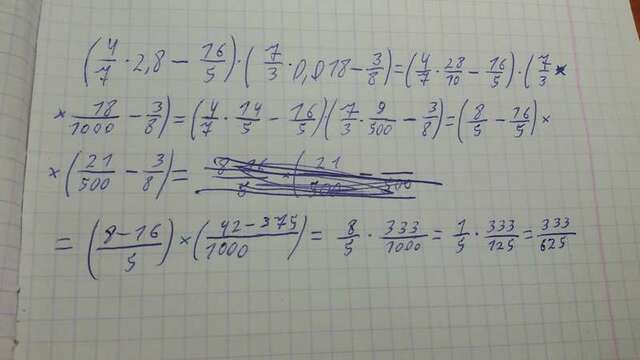 (4/7 · 2,8 − 16/5) · (7/3 · 0,018 − 3/8) = (4/7 · 28/10 − 16/5) · (7/3 ×
× 18/1000 − 3/8) = (4/7 · 14/5 − 16/5)(7/3 · 9/500 − 3/8) = (8/5 − 16/5) ×
× (21/500 − 3/8) =
= ((8−16)/5) × ((42−375)/1000) = 8/5 · 333/1000 = 1/5 · 333/125 = 333/625